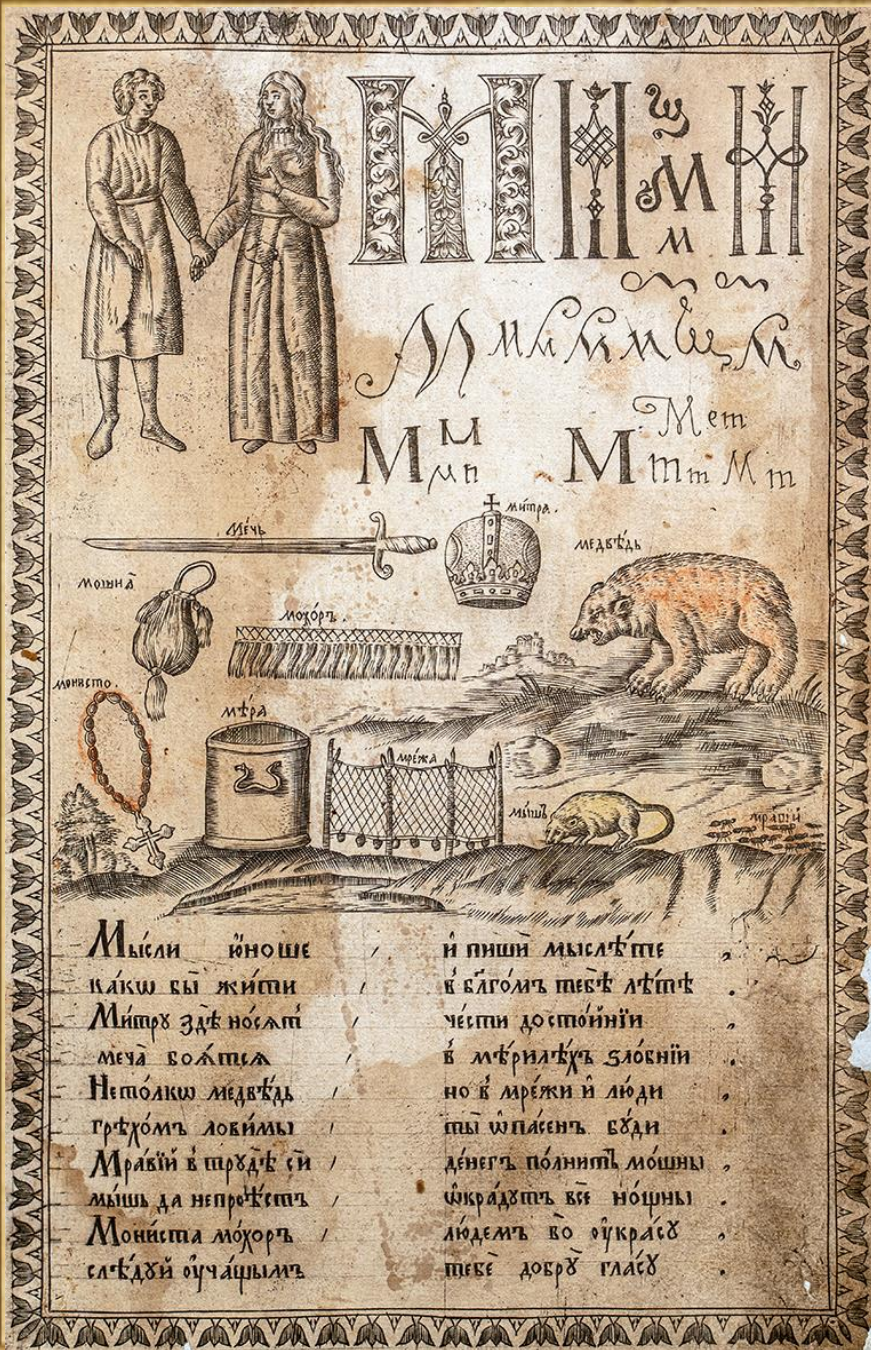 М М щ М м М
М м м м м м щ м
М м м п М М е т т т М т
Ме́чь
ми́тра .
медвѣ́дь
мошна̀
мохо́ръ .
монисто .
мѣ́ра
мре́жа
мы́шъ
мра́вїй
Мы́сли ю҆́ноше и҆ пишѝ мыслѣ́те
ка́кѡ бы̀ жи́ти в̾ бл҃го́мъ тебѣ̀ лѣ́тѣ
Ми́трꙋ здѣ̀ но́сѧт̾ че́сти досто́йнїи
меча̀ боѧ́тсѧ в̾ мѣ́рилѣ́хъ ѕло́бнїи
Нето́лкѡ медвѣ́дь но в̾ мре́жи и҆ лю́ди
грѣхо́мъ лови́мы ты̀ ѡ҆па́сенъ бꙋ́ди
Мра́вїй в̾ трꙋ́дѣ сѝ де́негъ по́лнит̾ мо́шны
мы́шь да непрое́стъ ѡ҆кра́дꙋтъ всѐ но́щны
Мони́ста мо́хоръ лю́демъ во ᲂу҆кра́сꙋ
слѣ́дꙋй ᲂу҆ча́щымъ тебѐ добрꙋ̀ гла́сꙋ